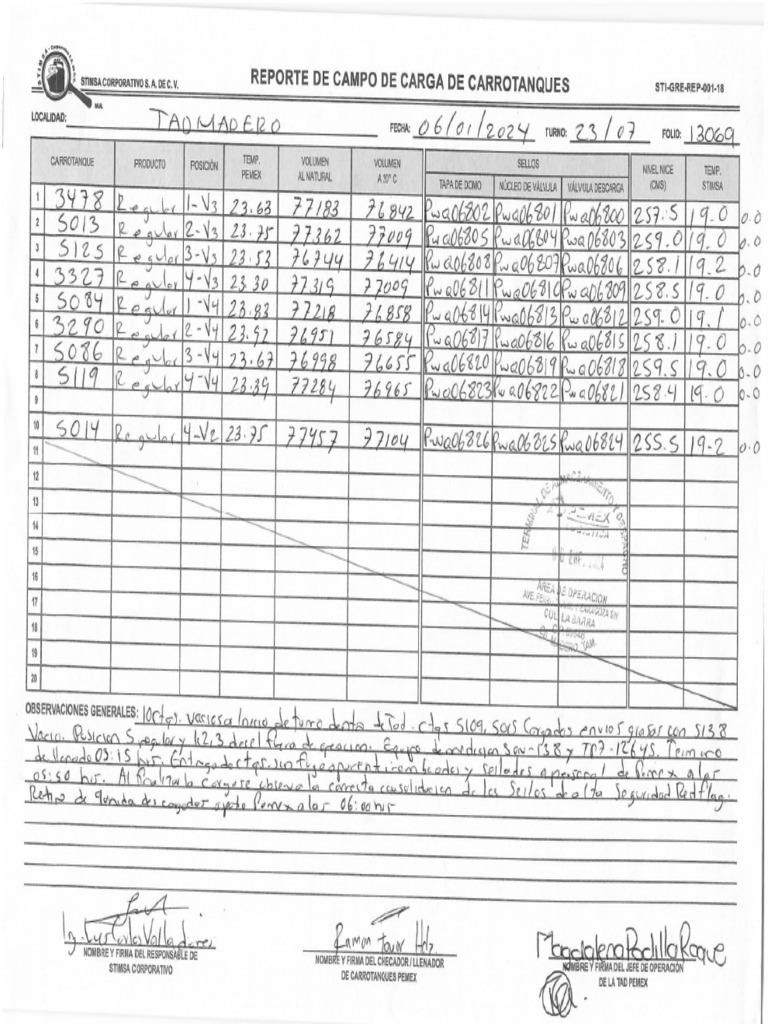 STIMSA CORPORATIVO S. A. DE C. V.
REPORTE DE CAMPO DE CARGA DE CARROTANQUES
STI-GRE-REP-001-18
LOCALIDAD: TAD MADERO FECHA: 06/01/2024 TURNO: 23/07 FOLIO: 13069
CARROTANQUE PRODUCTO POSICIÓN TEMP. PEMEX VOLUMEN AL NATURAL VOLUMEN A 20° C SELLOS NIVEL NICE (CMS) TEMP. STIMSA
TAPA DE DOMO NÚCLEO DE VÁLVULA VÁLVULA DESCARGA
1 3478 Regular 1-V3 23.63 77183 76842 Pwa06802 Pwa06801 Pwa06800 257.5 19.0 0.0
2 5013 Regular 2-V3 23.75 77362 77009 Pwa06805 Pwa06804 Pwa06803 259.0 19.0 0.0
3 5125 Regular 3-V3 23.53 76744 76414 Pwa06808 Pwa06807 Pwa06806 258.1 19.2 0.0
4 3327 Regular 4-V3 23.30 77319 77009 Pwa06811 Pwa06810 Pwa06809 258.5 19.0 0.0
5 5084 Regular 1-V4 23.83 77218 76858 Pwa06814 Pwa06813 Pwa06812 259.0 19.1 0.0
6 3290 Regular 2-V4 23.92 76951 76584 Pwa06817 Pwa06816 Pwa06815 258.1 19.0 0.0
7 5086 Regular 3-V4 23.67 76998 76655 Pwa06820 Pwa06819 Pwa06818 259.5 19.0 0.0
8 5119 Regular 4-V4 23.39 77284 76965 Pwa06823 Pwa06822 Pwa06821 258.4 19.0 0.0
9
10 5014 Regular 4-V2 23.75 77457 77104 Pwa06826 Pwa06825 Pwa06824 255.5 19-2 0.0
11
12
13
14
15
16
17
18
19
20
TERMINAL DE ALMACENAMIENTO Y
PEMEX
LOGISTICA
ÁREA DE OPERACIÓN
COL. LA BARRA
MADERO, TAM.
OBSERVACIONES GENERALES: 10 Ctqs. vacios a Inicio de turno dentro de Tad. Ctqs 5109, Cargados envios con 5138
Vacio. Posicion 5 regular y 1,2,3 diesel fuera de operacion. Equipo de medicion y TP7-12645. Termino
de llenado 05:15 hrs. Entregado ctqs. sin fuga aparente y sellados a personal de Pemex a las
05:50 hrs. Al finalizar la carga se observo la correcta consolidacion de los Sellos de alta Seguridad Redflag.
Retiro de 06:00 hrs
NOMBRE Y FIRMA DEL RESPONSABLE DE
STIMSA CORPORATIVO
Ramon
NOMBRE Y FIRMA DEL CHECADOR / LLENADOR
DE CARROTANQUES PEMEX
Magdalena Padilla Roque
NOMBRE Y FIRMA DEL JEFE DE OPERACIÓN
DE LA TAD PEMEX